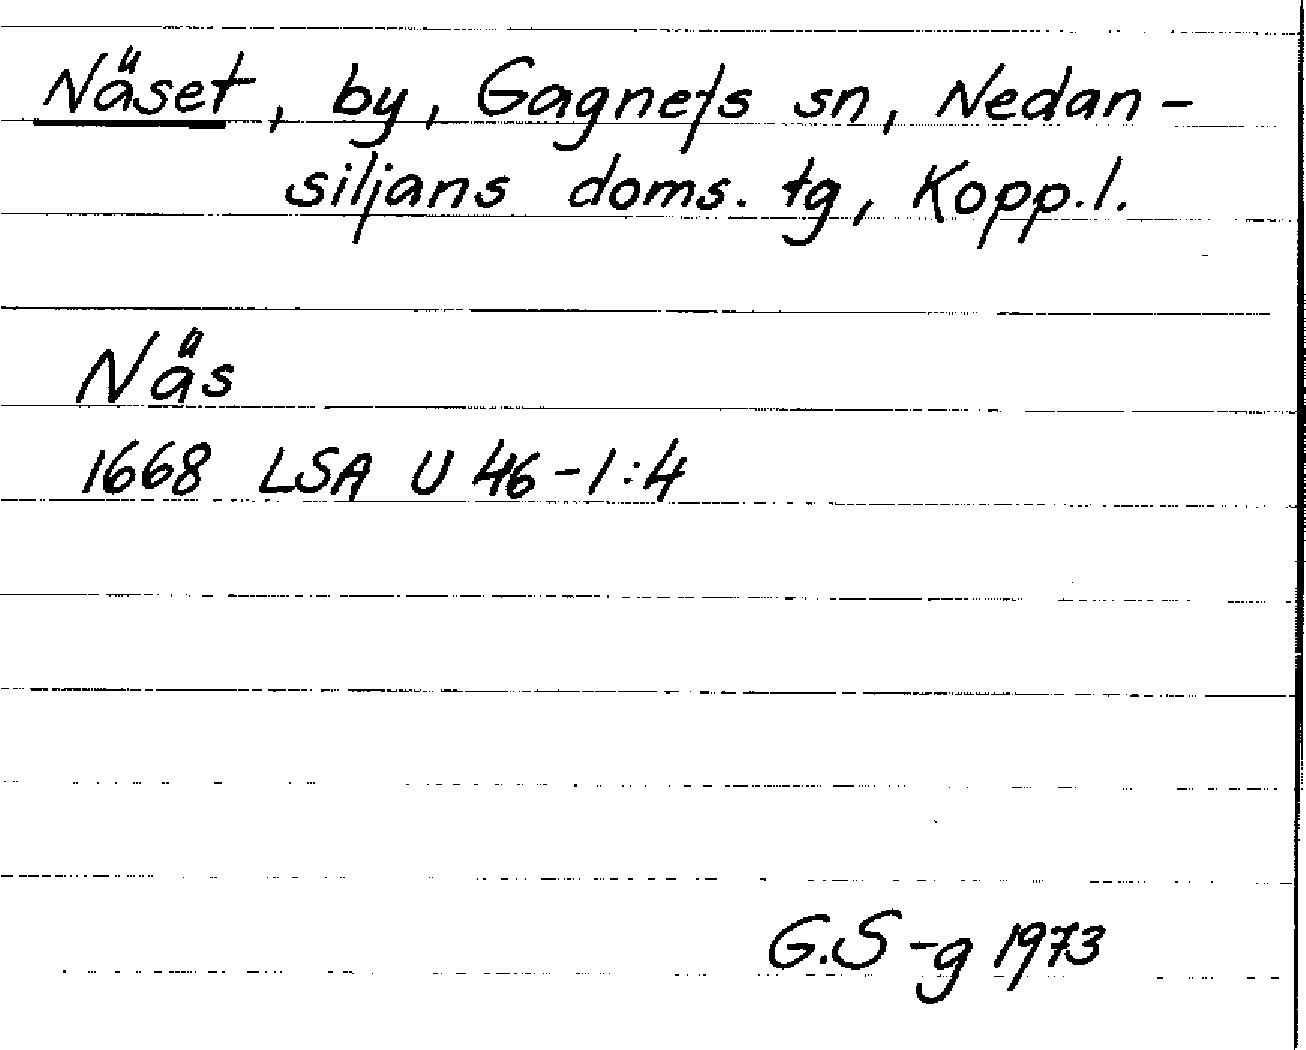 Näset, by, Gagnefs sn, Nedan-
siljans doms. tg, Kopp. l.
Näs
1668 LSA U 46-1:4
G.S-g 1973